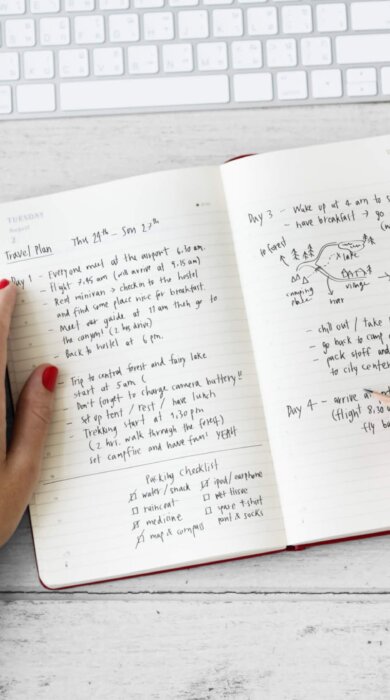 TUESDAY
August
2
Travel Plan Thu 24th - Sun 27th
Day 1 - Everyone meet at the airport 6.30 am.
- Flight 7.45 am (will arrive at 9.15 am)
- Rent minivan > checkin to the hostel
and find some place nice for breakfast.
- Meet our guide at 11 am then go to
the canyon (2 hrs drive)
- Back to hostel at 6 pm.
- Trip to central forest and fairy lake
start at 5 am (
- Don't forget to change camera battery!!
- Set up tent / Rest / have lunch
- Trekking start at 1.30 pm
(2 hrs. walk through the forest)
set campfire and have fun! YEAH
Packing Checklist
water / snack
raincoat
medicine
map & compass
ipod / earphone
wet tissue
spare t-shirt
pant & socks
Day 3 - Wake up at 4 am to
- have breakfast → go
to forest
lake
camping
place
river
village
- chill out / take
- go back to camp
- pack stuff and
to city center
Day 4 - arrive
(flight 8.30
fly